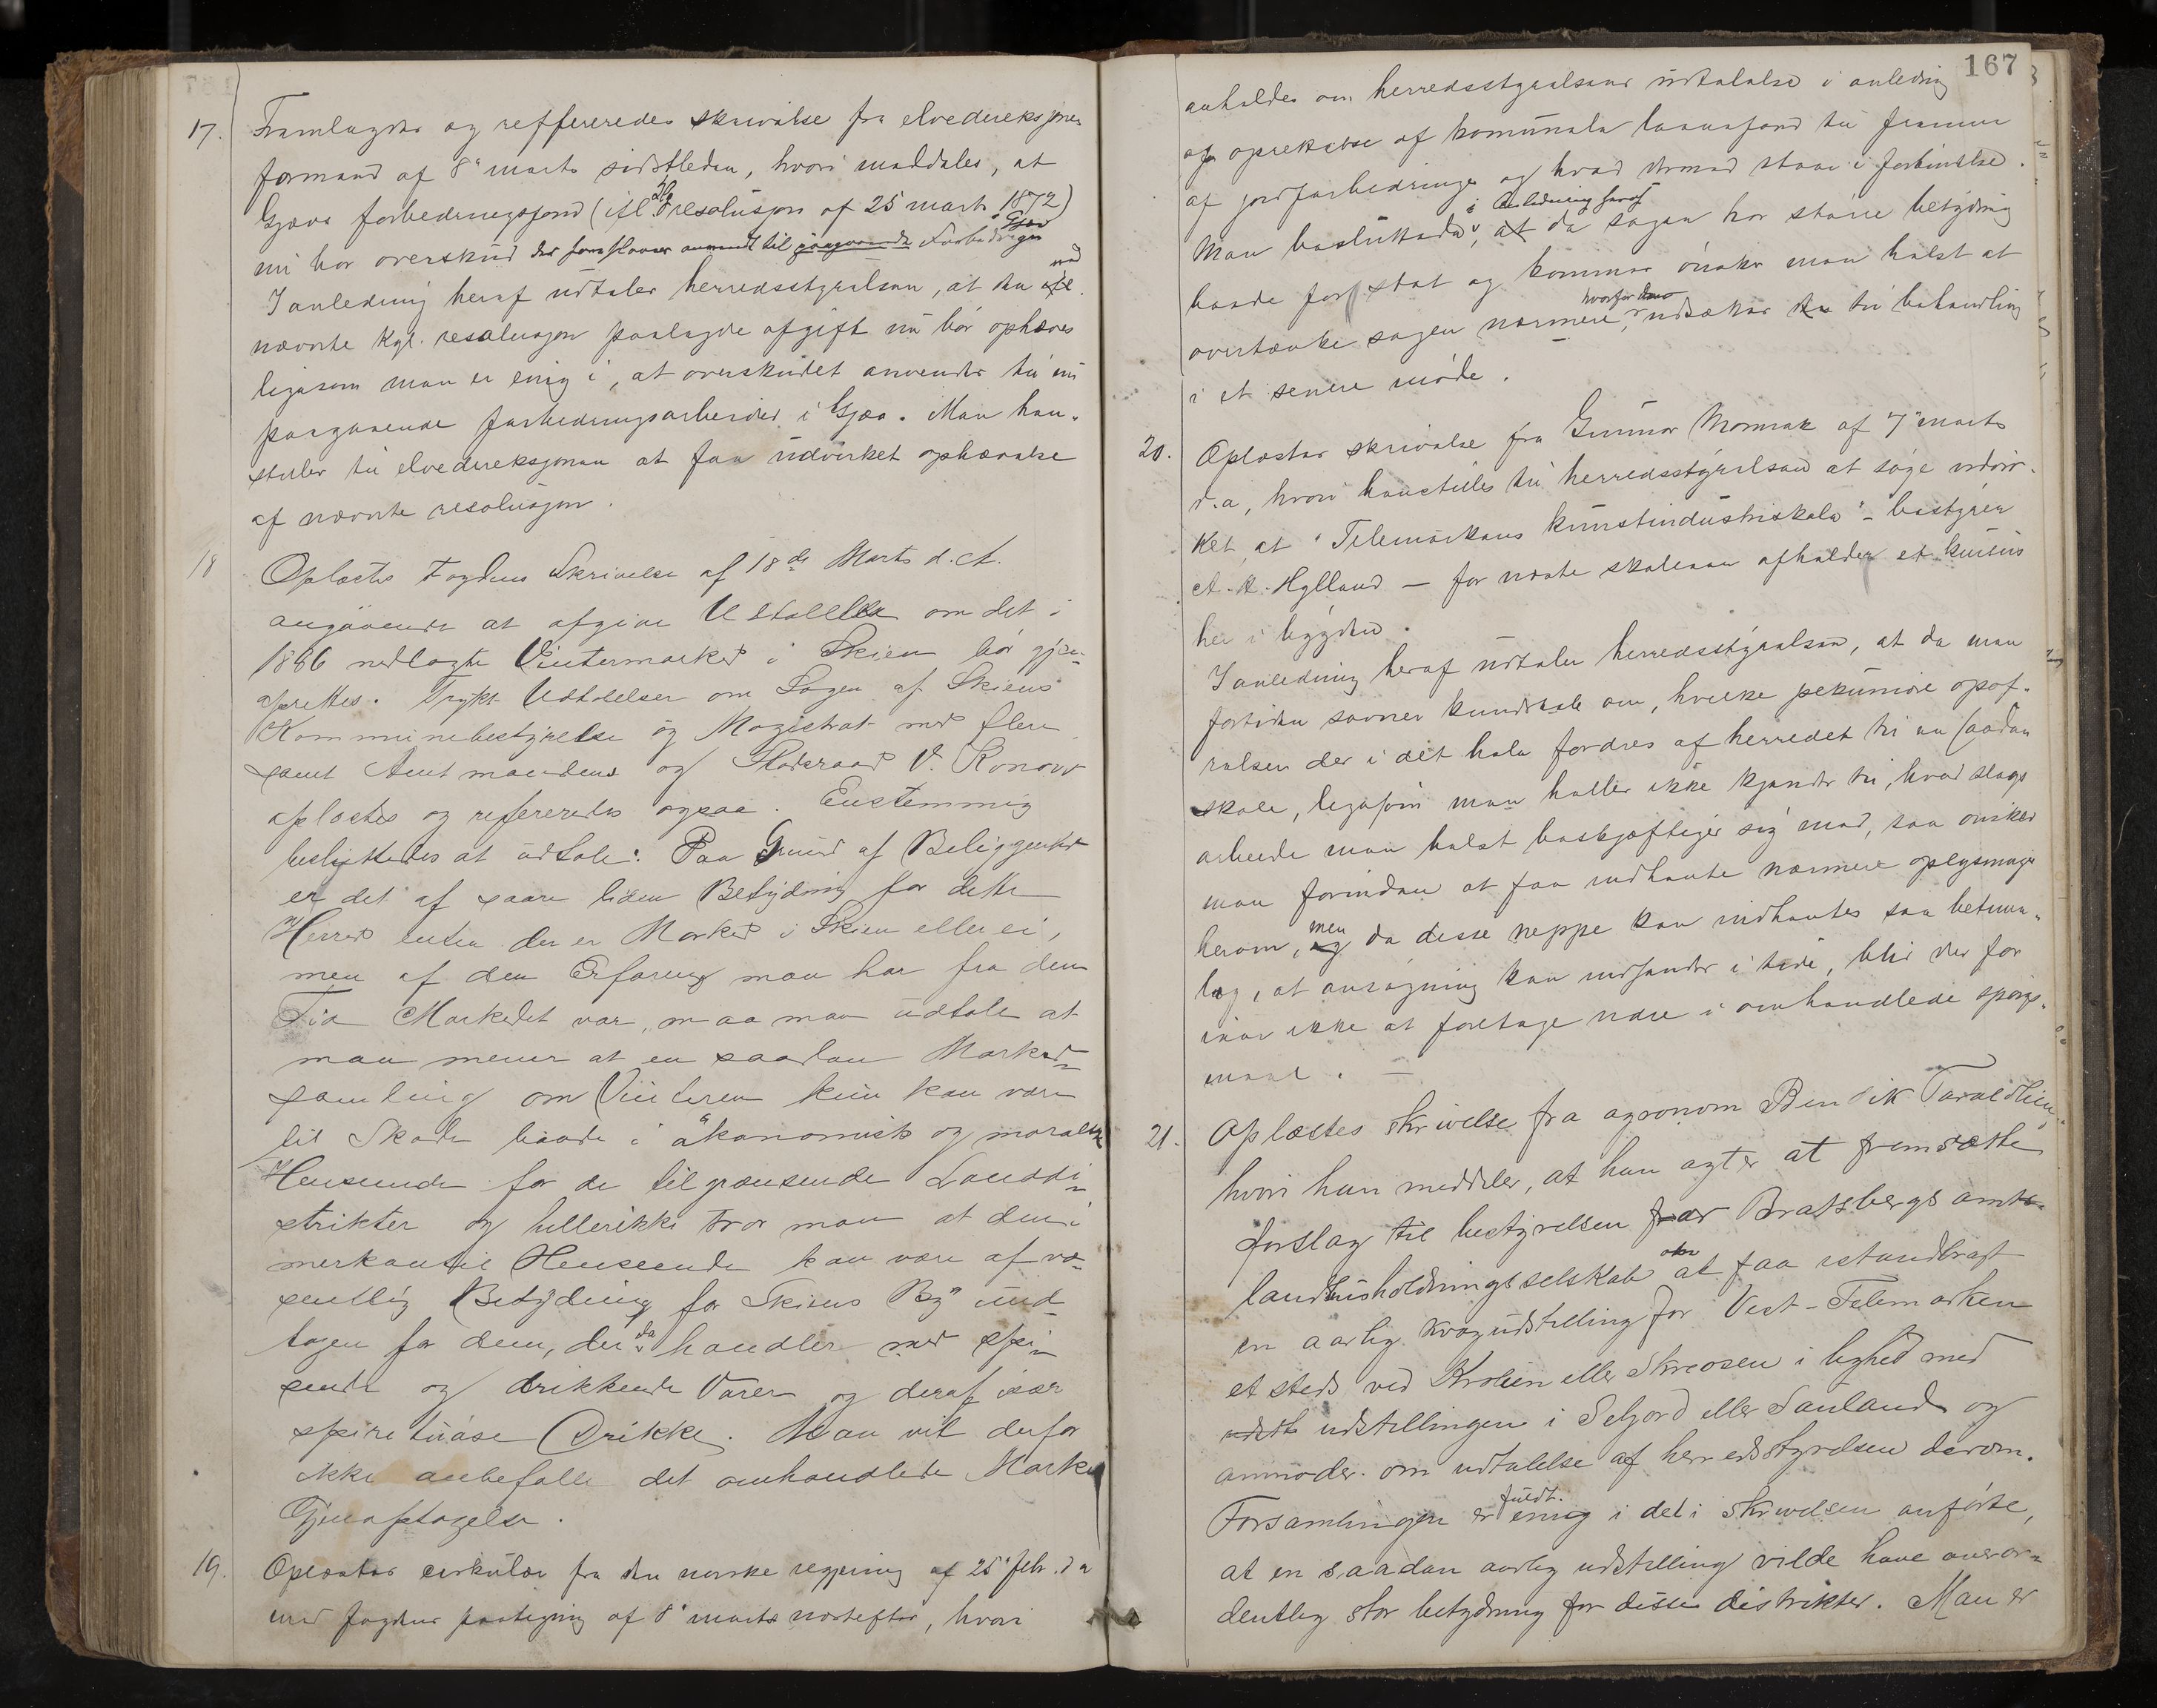 17. Framlagdes og reffereredes skrivelse fra elvedireksjonens
formand af 8de marts sidstleden, hvori meddeles, at
Gjøvs forbedringsfond (ifl. kgl. resolusjon af 25 marts 1872)
nu har overskud der foreslaaes anvendt til paagaaende Forbedringer i Gjøv
I anledning heraf udtaler herredsstyrelsen, at den ved
nævnte kgl. resolusjon paalagte afgift nu bør ophæves
ligesom man er enig i, at overskudet anvendes til nu
paagaaende forbedringsarbeider i Gjøa. Man hen-
stiller til elvedireksjonen at faa udvirket ophævelse
af nævnte resolusjon.
18 Oplæstes Fogdens Skrivelse af 18de Marts d. A.
angaaende at afgive Udtalelse om det i
1886 nedlagte Vintermarked i Skien bør gjen-
oprettes. Trykt Udtalelser om Sagen af Skiens
Kommunebestyrelse og Magistrat med flere
samt Amtmandens og Statsraad V. Konow
oplæstes og refereredes ogsaa. Enstemmig
besluttedes at udtale: Paa Grund af Beliggenhed
er det af saare liden Betydning for dette
Herred enten der er Marked i Skien eller ei,
men af den Erfaring man har fra den
Tid Markedet var, maa man udtale at
man mener at en saadan Marked-
samling om Vinteren kun kan være
til Skade baade i økonomisk og moralsk
Henseende for de tilgrænsende Landdi-
strikter og hellerikke tror man at den i
merkantil Henseende kan være af væ-
sentlig Betydning for Skiens By und-
tagen for dem, der da handler med spi-
sende og drikkende Varer og deraf især
spirituøse Drikke. Man vil derfor
ikke anbefale det omhandlede Marked
Gjenoptagelse.
19. Oplæstes cirkulær fra den norske regjering af 25de febr. d a
med fogdens paategning af 8de marts næstefter, hvori
167
anholdes om herredsstyrelsens udtalelse i anledning
af oprettelse af kommunale laanefond til fremme
af jordforbedringer og hvad dermed staar i forbindelse.
Man besluttede i Anledning heraf, at da sagen har større betydning
baade for stat og kommune ønsker man helst at
overtænke sagen nærmere, hvorfor den udsættes til behandling
i et senere møde.
20. Oplæstes skrivelse fra Gunnar Mormak af 7de marts
d. a, hvori henstilles til herredsstyrelsen at søge udvir-
ket, at "Telemarkens kunstindustriskole" - bestyrer
A. K. Hylland - for næste skoleaar afholder et kursus
her i bygden.
I anledning heraf udtaler herredsstyrelsen, at da man
fortiden savner kundskab om, hvilke pekuniære opof-
relser der i det hele fordres af herredet til en saadan
skole, ligesom man heller ikke kjender til, hvad slags
arbeide man helst beskjæftiger sig med, saa ønsker
man forinden at faa indhente nærmere oplysninger
herom, men da disse neppe kan indhentes saa betime-
lig, at ansøgning kan indsendes i tide, blir der for
iaar ikke at foretage videre i omhandlede spørgs-
maal. -
21. Oplæstes skrivelse fra agronom Bendik Taraldlien,
hvori han meddeler, at han agter at fremsætte
forslag til bestyrelsen for Bratsbergs amts-
landhusholdningsselskab om at faa istandbragt
en aarlig kvægudstilling for Vest-Telemarken
et steds ved Krosen eller Skreosen i lighed med
udst udstillingen i Seljord eller Sauland og
anmoder om udtalelse af herredsstyrelsen derom.
Forsamlingen er fuldt enig i det i skrivelsen anførte,
at en saadan aarlig udstilling vilde have overor-
dentlig stor betydning for disse distrikter. Man er